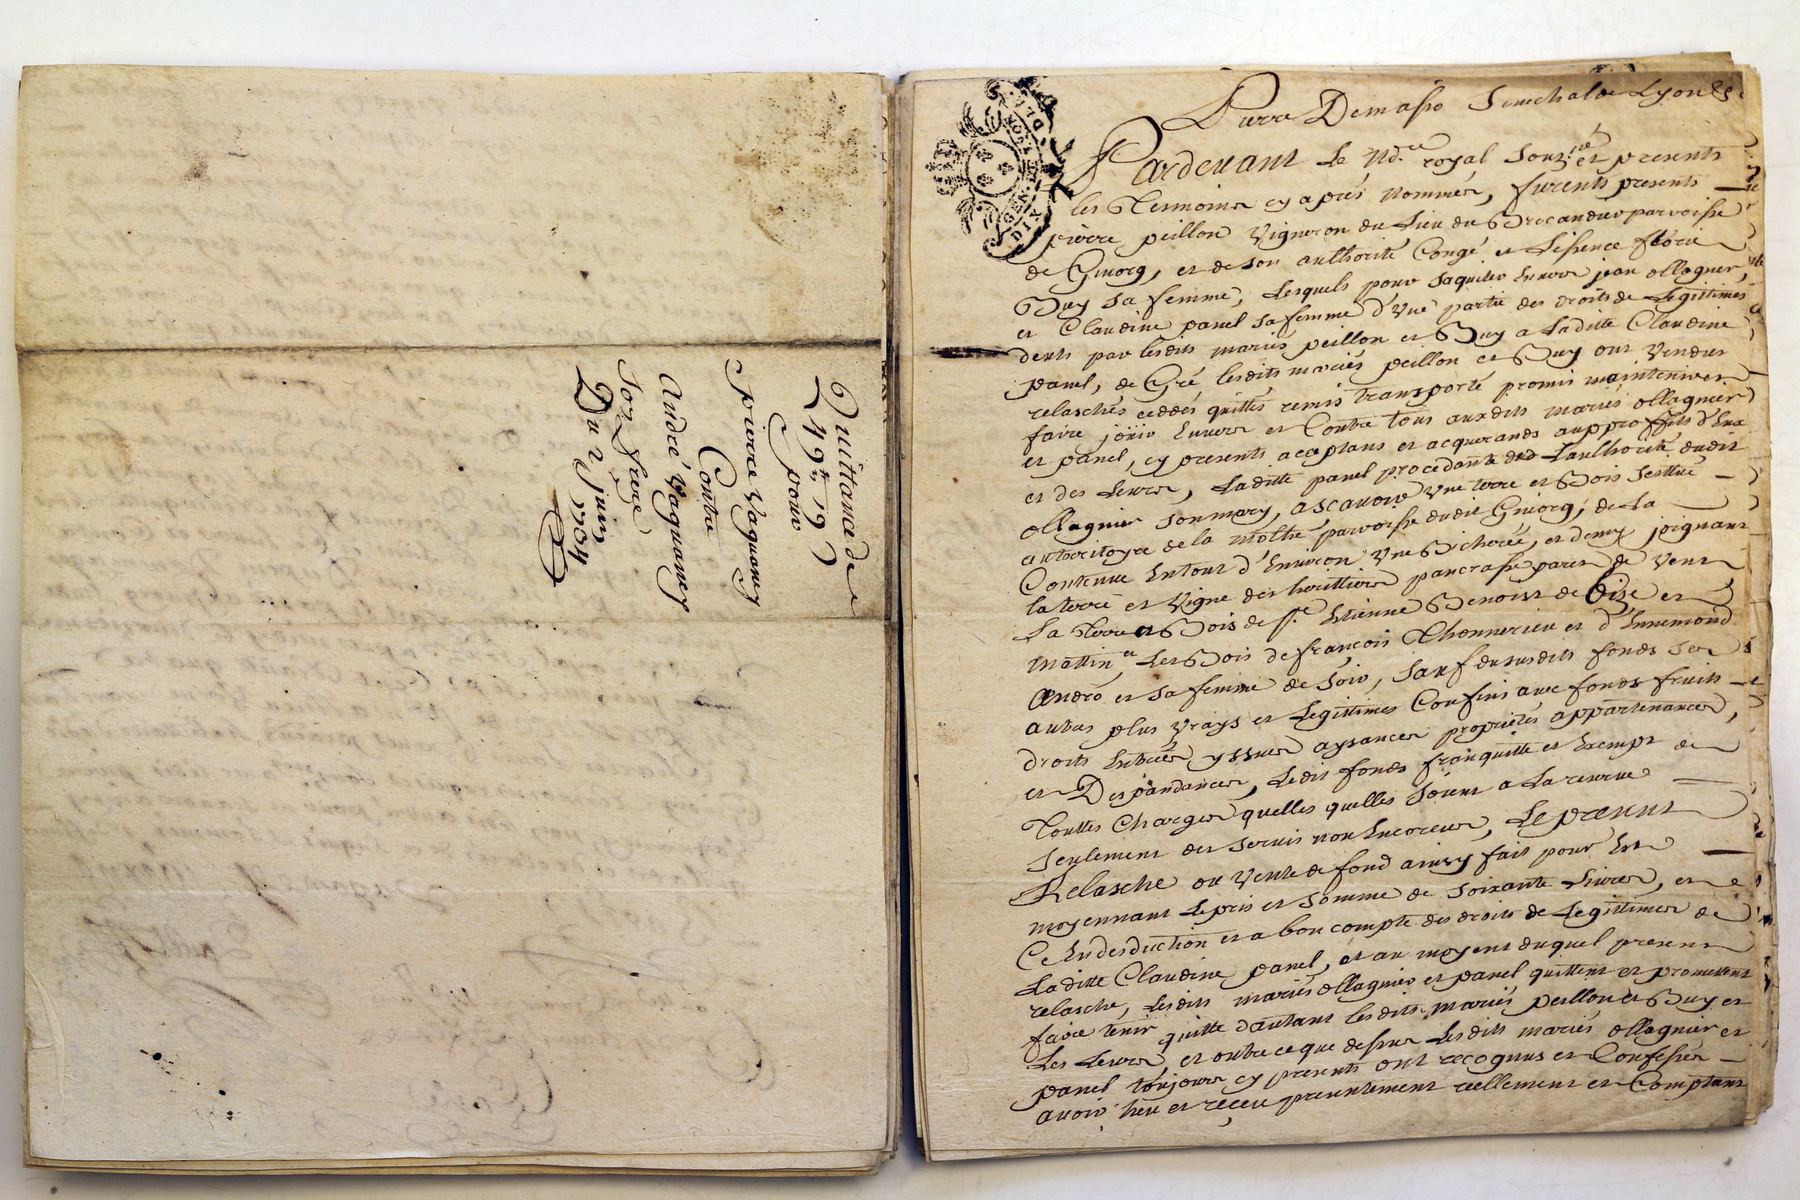 Quittance de
49 ₶ 19 s
pour
pierre Vaganey
Contre
André vaganey
son frere
Du 2 juin
1704
GEN. DE LYON
DIX DEN.
Pierre Demasso Senechal de Lyon &c
Pardevant Le Nd.re royal souz.né et presents
les Tesmoins cy apres nommés, furents presents
pierre peillon vigneron du Lieu du parroisse
de Givorg, et de son authorité Congé et Lissence
Buy sa femme, Lesquels pour saquiter Envers jean ollagnier,
et Claudine panel sa femme d'vne partie des droits de Legittimes
deubs par lesdits mariés peillon et Buy a Laditte Claudine
panel, de Gré lesdits mariés peillon et Buy ont Vendus
relaschés ceddés quittés remis transporté promis maintenir et
faire joüir Envers et Contre tous auxdits mariés ollagnier
et panel, cy presents aceptans et acquerands au proffits d'Eux
et des Leurs, Laditte panel procédante de Lauthorité dudit
ollagnier son mary, ascavoir Vne terre et Bois scittué
au territoyre de la Mothe parroisse dudit Givorg, de La
Contenue Entout d'Environ Vne Bicherée et demy joignant
la terre et Vigne des herittiers pancrasse pares de Vent
La Terre et Bois de s.r Estienne Benoist de Bize et
mattin et Les Bois de françois Thonnerieu et d'Ennemond
André et sa femme de soir, sauf dusdits fonds ses
autres plus vrays et Legittimes Confins avec fonds fruits
droits Entrées yssues aysances propriétés appartenances,
et Despandances, Ledit fonds franquitte et Exempt de
Touttes Charges quelles quelles soient a La reserve
seulement des servis non Encoreus, Le present
Relasche ou Vente de fond ainsy fait pour Et
moyennant Le pris et somme de soixante Livres, et
Ce Endesduction et a bon compte des droits de Legittimes de
Laditte Claudine panel, et au moyent duquel present
relasche, Lesdits mariés ollagnier et panel quittent et promettent
faire tenir quitte dautant lesdits mariés peillon et Buy et
Les Leurs, et outre ce que dessus Lesdits mariés ollagnier et
panel toujours cy presents ont recognus et Confessés
avoir heu et reçeu presentement reellement et Comptant